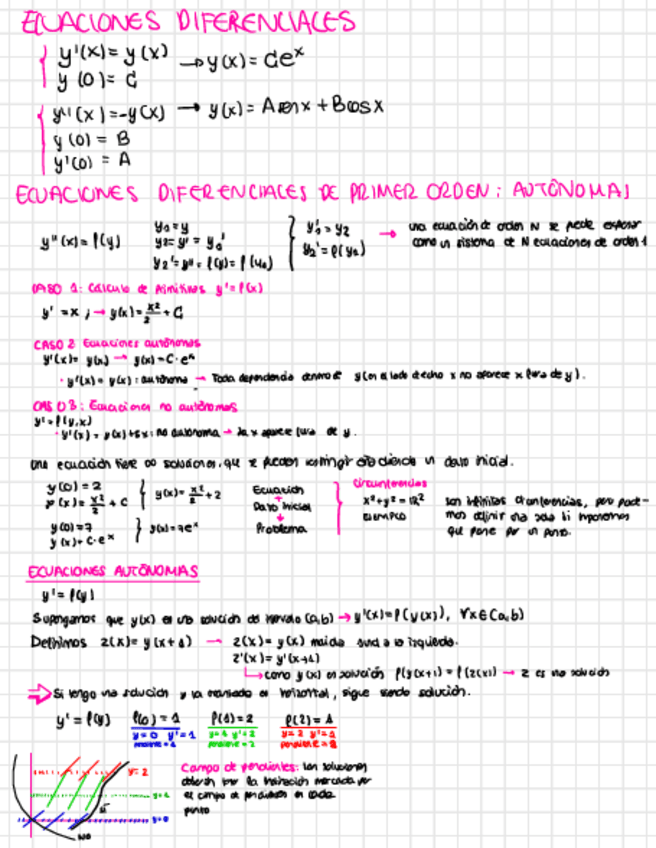 ECUACIONES DIFERENCIALES
y'(x) = y(x) → y(x) = Ce^x
y(0) = C
y''(x) = -y(x) → y(x) = A sen x + B cos x
y(0) = B
y'(0) = A
ECUACIONES DIFERENCIALES DE PRIMER ORDEN: AUTÓNOMAS
y''(x) = f(y) y₁ = y y₁' = y₂ → una ecuación de orden N se puede expresar
y₂ = y' = y₁' y₂' = f(y₁) como un sistema de N ecuaciones de orden 1
y₂' = y'' = f(y) = f(y₁)
CASO 1: Cálculo de primitivas y' = f(x)
y' = x ; → y(x) = x²/2 + C
CASO 2 Ecuaciones autónomas
y'(x) = y(x) → y(x) = C·e^x
· y'(x) = y(x) : autónoma → Toda dependencia dentro de y (en el lado derecho x no aparece x fuera de y).
CASO 3: Ecuaciones no autónomas
y' = f(y,x)
· y'(x) = y(x)+5x : no autónoma → la x aparece fuera de y.
una ecuación tiene ∞ soluciones, que se pueden restringir añadiendo un dato inicial.
y(0) = 2 Ecuación circunferencias
y(x) = x²/2 + C y(x) = x²/2 + 2 + x²+y² = R² son infinitas circunferencias, pero pode-
y(0) = 7 y(x) = 7e^x Dato inicial EJEMPLO mos definir una sola si imponemos
y(x) = C·e^x Problema que pase por un punto.
ECUACIONES AUTÓNOMAS
y' = f(y)
Supongamos que y(x) es una solución de intervalo (a,b) → y'(x) = f(y(x)), ∀x∈(a,b)
Definimos z(x) = y(x+1) → z(x) = y(x) movida una a la izquierda.
z'(x) = y'(x+1)
como y(x) es solución f(y(x+1)) = f(z(x)) → z es una solución
⇒ Si tengo una solución y la traslado en horizontal, sigue siendo solución.
y' = f(y) f(0) = 1 f(1) = 2 f(2) = 1
y=0 y'=1 y=1 y'=2 y=2 y'=1
pendiente = 1 pendiente = 2
Campo de pendientes: las soluciones
y=2 deben tener la inclinación marcada por
y=1 el campo de pendientes en cada
SÍ punto
y=0
NO